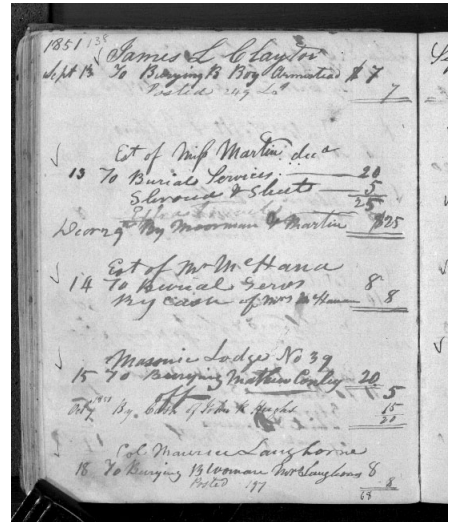 1851 138
James L Clayton
Sept 13 To Burying B Boy Armstead $7
Posted 249
7
Est of Miss Martin decd
13 To Burials Services 20
Shroud & Sheet 5
25
Decr 29 By Moorman & Martin $25
Est of Mr McHana
14 To Burial Servs 8
By cash of Mrs McHana 8
Masonic Lodge No 39
15 To Burying Mathew Conley 20
off 5
By Cash of John H Hughs 15
20
Col Maurice Langhorne
18 To Burying B Woman Mrs Langhorns 8
Posted 197
8
68